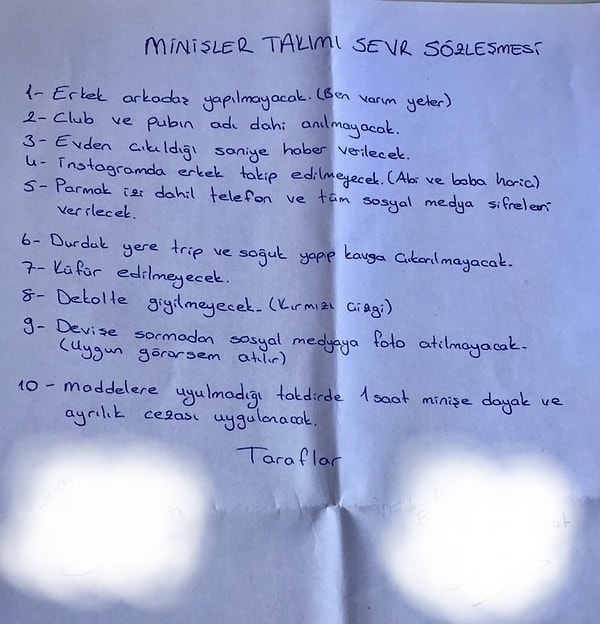 MİNİŞLER TAKIMI SEVR SÖZLEŞMESİ
1- Erkek arkadaş yapılmayacak. (Ben varım yeter)
2- Club ve pubın adı dahi anılmayacak.
3- Evden çıkıldığı saniye haber verilecek.
4- İnstagramda erkek takip edilmeyecek. (Abi ve baba hariç)
5- Parmak izi dahil telefon ve tüm sosyal medya şifreleri
verilecek.
6- Durduk yere trip ve soğuk yapıp kavga çıkarılmayacak.
7- Küfür edilmeyecek.
8- Dekolte giyilmeyecek. (Kırmızı Çizgi)
9- Devişe sormadan sosyal medyaya foto atılmayacak.
(Uygun görürsem atılır)
10- maddelere uyulmadığı takdirde 1 saat minişe dayak ve
ayrılık cezası uygulanacak.
Taraflar